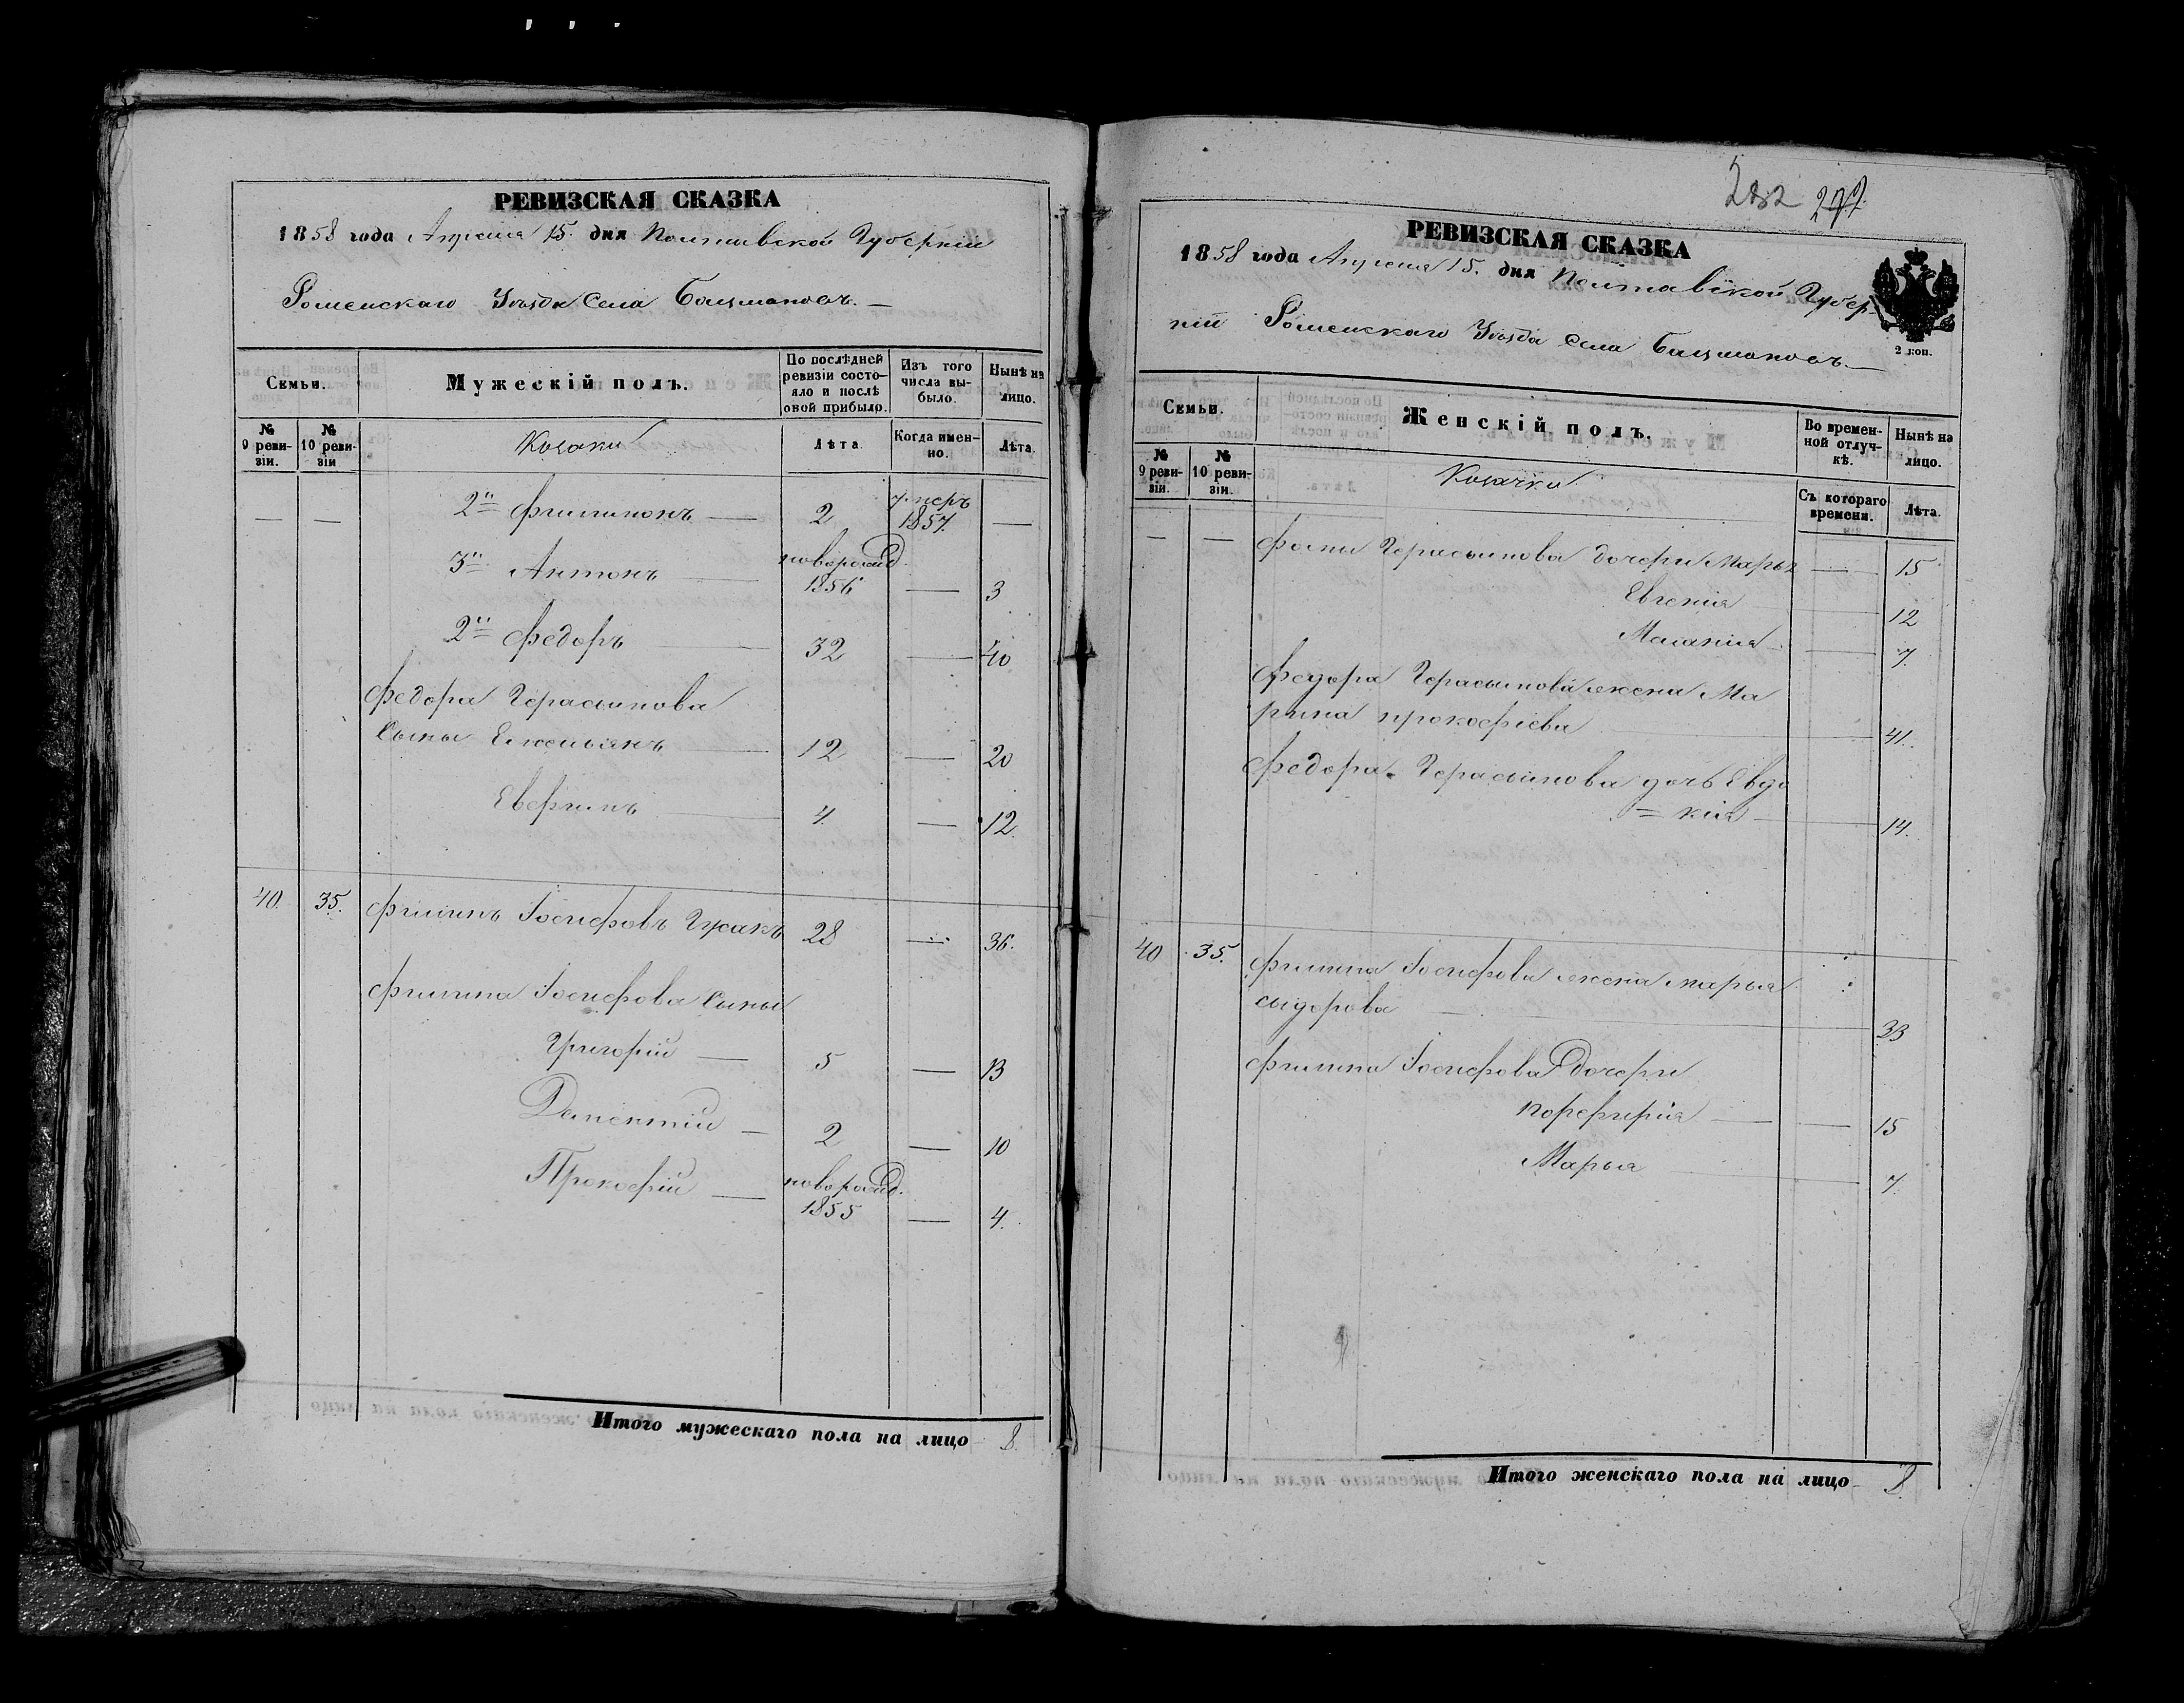 РЕВИЗСКАЯ СКАЗКА
1858 года Апреля 15. дня Полтавской Губерніи
Роменскаго Уѣзда Села Бацманова.
Семьи.
Мужескій полъ.
По послѣдней ревизіи состояло и послѣ оной прибыло.
Изъ того числа выбыло.
Нынѣ на лицо.
№ 9 ревизіи.
№ 10 ревизіи
Козаки
Лѣта
Когда именно.
Лѣта.
2й Филимонъ 2 умеръ 1857.
3й Антонъ новорожд. 1856 3
2й Федоръ 32 40
Федора Герасимова
Сыны Емельянъ 12 20
4. 12.
40. 35. Филипъ Іосифовъ 28 36.
Филипа Іосифова Сыны
Григорій 5 13
Дементій 2 10
Прокофій новорожд. 1855 4.
Итого мужескаго пола на лицо 8.
282 277
РЕВИЗСКАЯ СКАЗКА
1858 года Апреля 15. дня Полтавской Губер-
ніи Роменскаго Уѣзда Села Бацманова
2 коп.
Семьи.
Женскій полъ.
Во временной отлучкѣ.
Нынѣ на лицо.
№ 9 ревизіи.
№ 10 ревизіи.
Козачки
Съ котораго времени.
Лѣта.
Герасимова дочери Марья 15
Евгенія 12
Маланія 7.
Федора Герасимова жена Ма
рина Прокофіева 41.
Федора Герасимова дочь Евдо
= кія 14.
40 35. Филипа Іосифова жена Марья
Сыдорова 33
Филипа Іосифова дочери
Порфирія 15
Марья 7.
Итого женскаго пола на лицо 8.